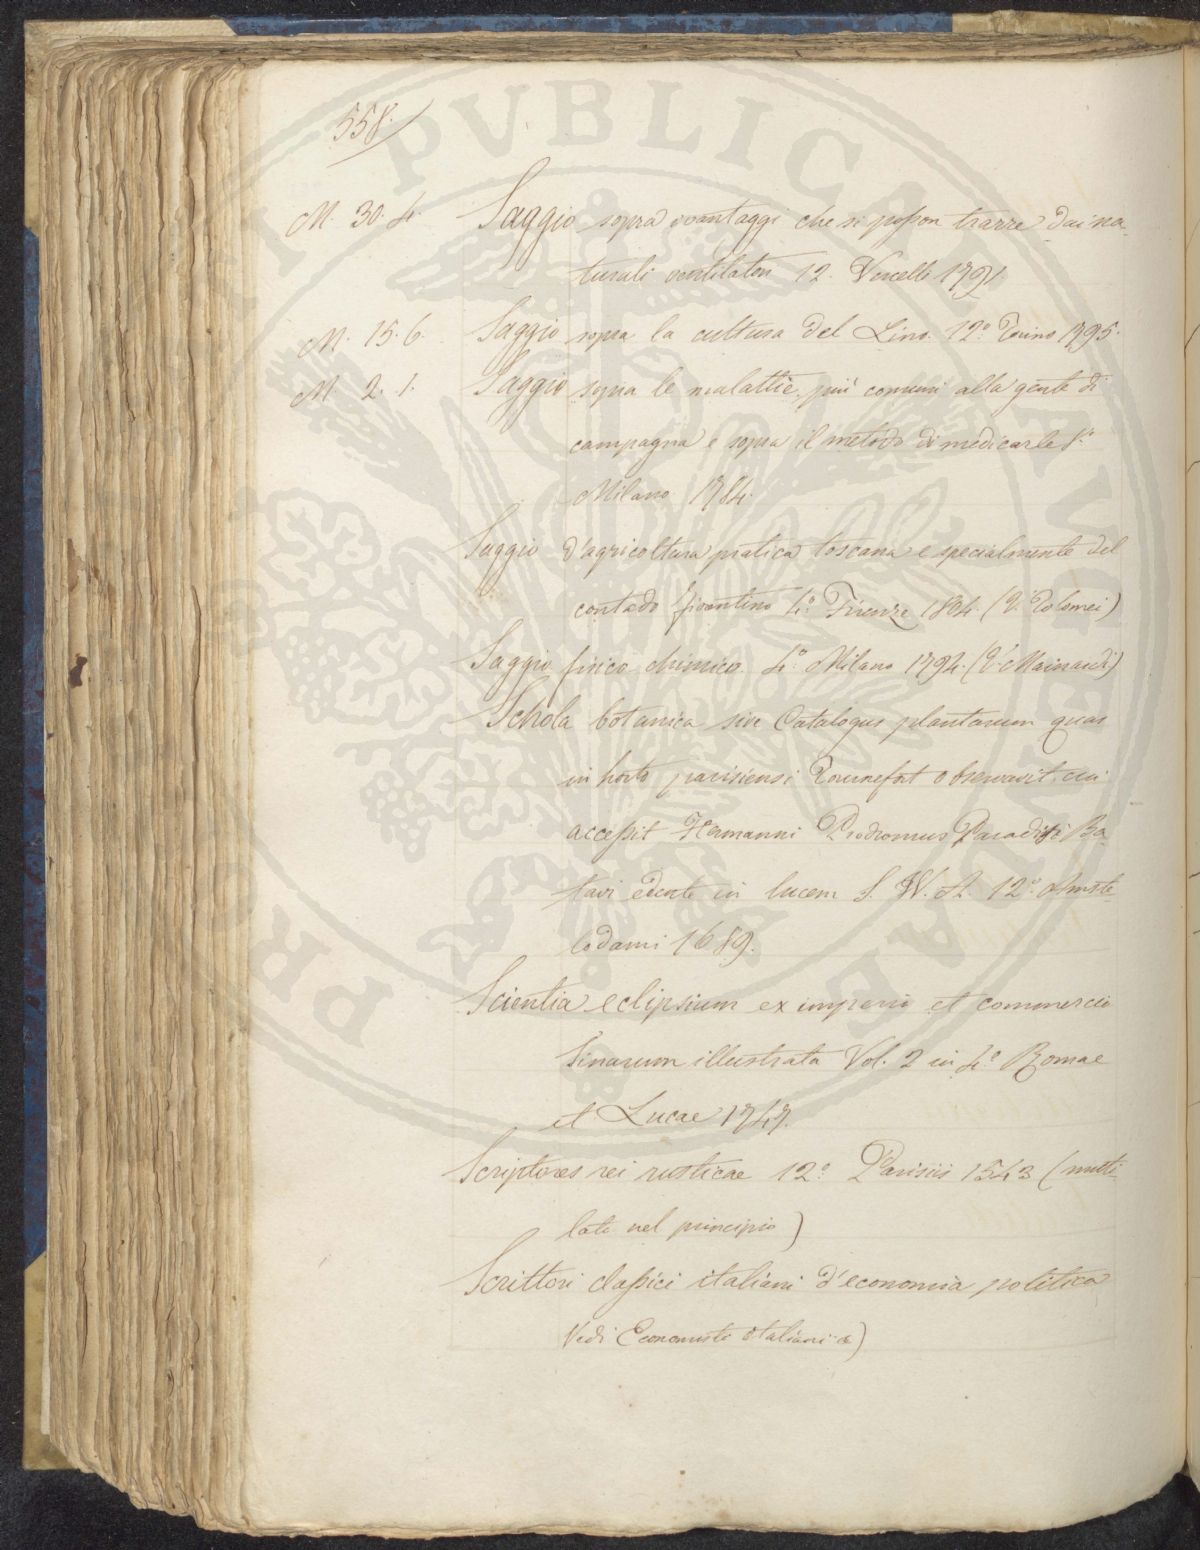 558.
M. 30. 4. Saggio sopra vantaggi che si posson trarre dai na-
turali ventilatori 12. Vercelli 1791
M. 15. 6. Saggio sopra la cultura del Lino. 12.° Torino 1795.
M 2. 1. Saggio sopra le malattie più comuni alla gente di
campagna e sopra il metodo di medicarle 8.°
Milano 1784.
Saggio d'agricoltura pratica toscana e specialmente del
contado fiorentino 4.° Firenze 1804. (V. Tolomei)
Saggio fisico chimico 4.° Milano 1794. (V. Mainardi)
Schola botanica sive Catalogus plantarum quas
in horto parisiensi Tournefort observavit, cui
accessit Hermanni Prodromus Paradisi Ba-
tavi edente in lucem S. W. A. 12.° Amste-
lodami 1689.
Scientia eclipsium ex imperio et commercio
Sinarum illustrata Vol. 2 in 4.° Romae
et Lucae 1747.
Scriptores rei rusticae 12.° Parisiis 1543 (muti-
lato nel principio)
Scrittori classici italiani d'economia politica
Vedi Economisti italiani)
PUBLICAE